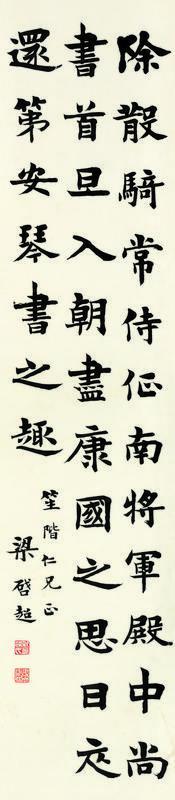 除散騎常侍征南將軍殿中尚
書首旦入朝盡康國之思日仄
還第安琴書之趣
笙階仁兄正
梁啓超